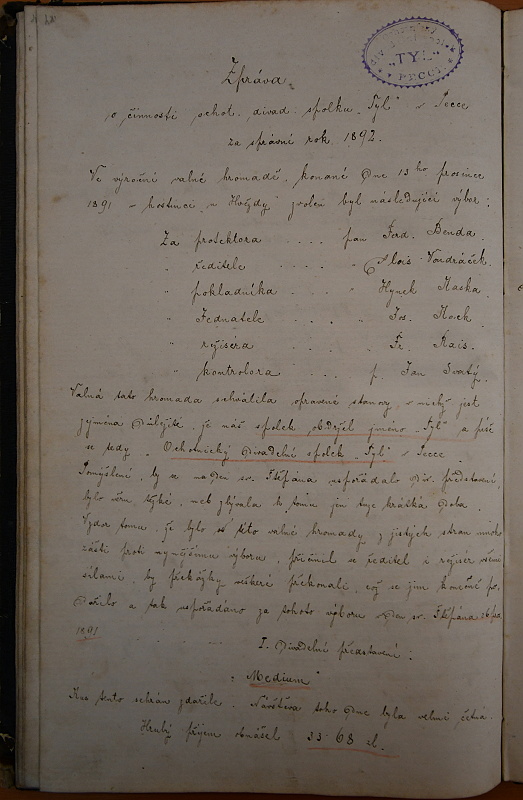 "TYL"
PECCE
Zpráva
o činnosti ochot. divad. spolku "Tyl" v Pecce
za správní rok 1892.
Ve výroční valné hromadě, konané dne 13ho prosince
1891 v hostinci "u Hvězdy" zvolen byl následující výbor:
Za protektora .... pan Ferd. Benda
" ředitele .... " Alois Vondráček.
" pokladníka .... " Hynek Maska.
" Jednatele .... " Jos. Mack.
" režiséra .... " Fr. Rais.
" kontrolora .... p. Jan Svatý.
Valná tato hromada schválila opravené stanovy, v nichž jest
zejména důležité, že náš spolek obdržel jméno "Tyl" a píše
se tedy "Ochotnický divadelní spolek "Tyl" v Pecce".
Pomýšlení, by se na den sv. Štěpána uspořádalo div. představení,
bylo věru těžké, neb zbývala k tomu jen krátká doba.
Vzdor tomu, že bylo od této valné hromady z jistých stran mnoho
záští proti nynějšímu výboru, přičinil se ředitel i režisér všemi
silami, by překážky veškeré překonali, což se jim konečně po-
dařilo a tak uspořádáno za tohoto výboru v den sv. Štěpána 26/XII
1891
I. Divadelní představení:
"Medium"
Kus tento sehrán zdařile. Návštěva toho dne byla velmi četná.
Hrubý příjem obnášel 33·68 zl.